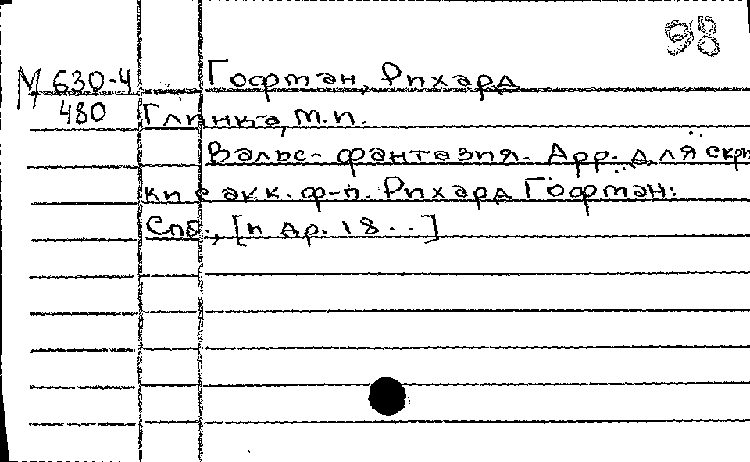 98
М 630-4 Гофман, Рихард
480 Глинка, М.И.
Вальс-фантазия. Арр. для скри
ки с акк. ф-п. Рихард Гофман:
Спб., [и др. 18..]